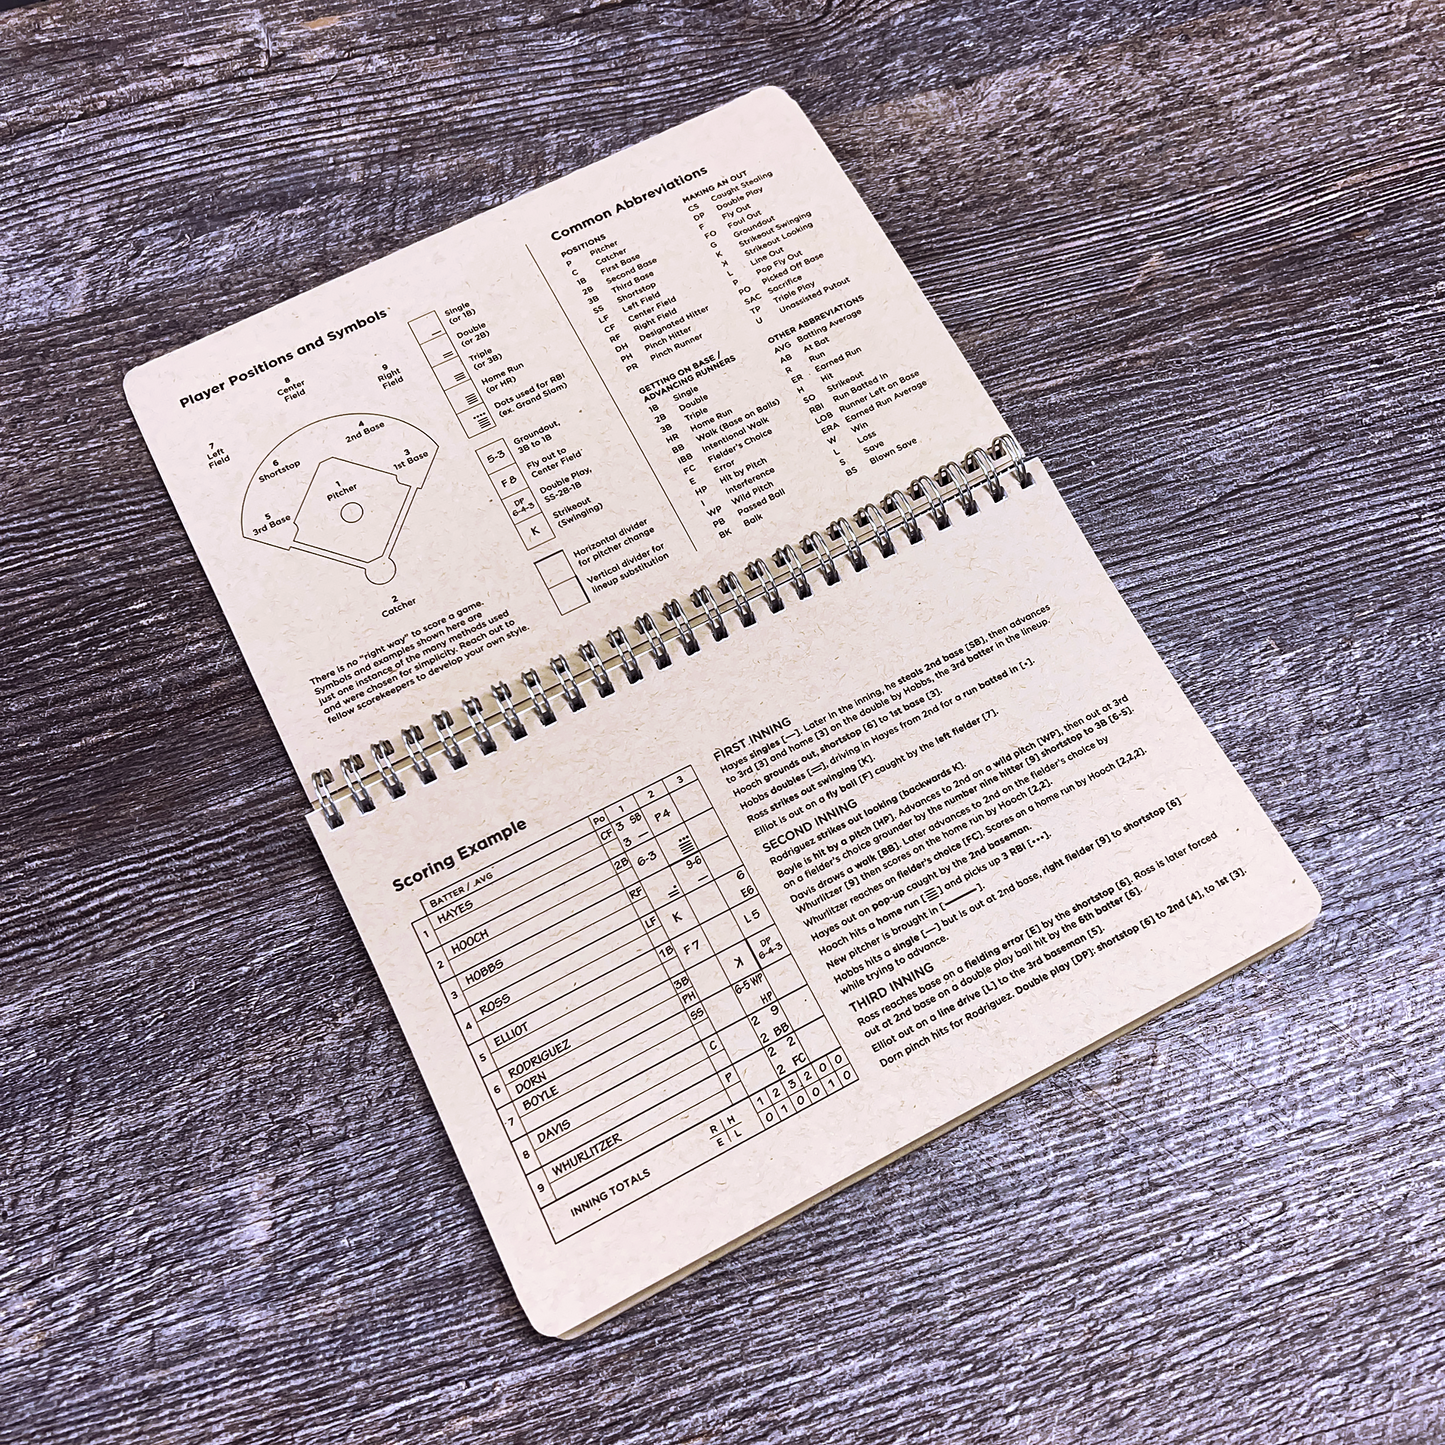 Player Positions and Symbols
8
Center
Field
9
Right
Field
7
Left
Field
4
2nd Base
6
Shortstop
3
1st Base
1
Pitcher
5
3rd Base
2
Catcher
Single
(or 1B)
Double
(or 2B)
Triple
(or 3B)
Home Run
(or HR)
Dots used for RBI
(ex. Grand Slam)
5-3
Groundout,
3B to 1B
F8
Fly out to
Center Field
DP
6-4-3
Double Play,
SS-2B-1B
K
Strikeout
(Swinging)
Horizontal divider
for pitcher change
Vertical divider for
lineup substitution
There is no "right way" to score a game.
Symbols and examples shown here are
just one instance of the many methods used
and were chosen for simplicity. Reach out to
fellow scorekeepers to develop your own style.
Common Abbreviations
POSITIONS
P Pitcher
C Catcher
1B First Base
2B Second Base
3B Third Base
SS Shortstop
LF Left Field
CF Center Field
RF Right Field
DH Designated Hitter
PH Pinch Hitter
PR Pinch Runner
GETTING ON BASE /
ADVANCING RUNNERS
1B Single
2B Double
3B Triple
HR Home Run
BB Walk (Base on Balls)
IBB Intentional Walk
FC Fielder's Choice
E Error
HP Hit by Pitch
I Interference
WP Wild Pitch
PB Passed Ball
BK Balk
MAKING AN OUT
CS Caught Stealing
DP Double Play
F Fly Out
FO Foul Out
G Groundout
K Strikeout Swinging
ꓘ Strikeout Looking
L Line Out
P Pop Fly Out
PO Picked Off Base
SAC Sacrifice
TP Triple Play
U Unassisted Putout
OTHER ABBREVIATIONS
AVG Batting Average
AB At Bat
R Run
ER Earned Run
H Hit
SO Strikeout
RBI Run Batted In
LOB Runner Left on Base
ERA Earned Run Average
W Win
L Loss
S Save
BS Blown Save
Scoring Example
BATTER / AVG Po 1 2 3
1 HAYES CF 3 SB 3 — P4
2 HOOCH 2B 6-3
3 HOBBS RF 9-6
4 ROSS LF K 6 E6
5 ELLIOT 1B F7 L5
6 RODRIGUEZ 3B ꓘ DP 6-4-3
DORN PH
7 BOYLE SS 6-5 WP HP
8 DAVIS C 2 9 2 BB
9 WHURLITZER P 2 2 2 FC
INNING TOTALS R H E L
1 2 3 2 0 0
0 1 0 0 1 0
FIRST INNING
Hayes singles [—]. Later in the inning, he steals 2nd base [SB], then advances
to 3rd [3] and home [3] on the double by Hobbs, the 3rd batter in the lineup.
Hooch grounds out, shortstop [6] to 1st base [3].
Hobbs doubles [=], driving in Hayes from 2nd for a run batted in [•].
Ross strikes out swinging [K].
Elliot is out on a fly ball [F] caught by the left fielder [7].
SECOND INNING
Rodriguez strikes out looking [backwards K].
Boyle is hit by a pitch [HP]. Advances to 2nd on a wild pitch [WP], then out at 3rd
on a fielder's choice grounder by the number nine hitter [9] shortstop to 3B [6-5].
Davis draws a walk [BB]. Later advances to 2nd on the fielder's choice by
Whurlitzer [9] then scores on the home run by Hooch [2,2].
Whurlitzer reaches on fielder's choice [FC]. Scores on a home run by Hooch [2,2,2].
Hayes out on pop-up caught by the 2nd baseman.
Hooch hits a home run [≣] and picks up 3 RBI [•••].
New pitcher is brought in [———].
Hobbs hits a single [—] but is out at 2nd base, right fielder [9] to shortstop [6]
while trying to advance.
THIRD INNING
Ross reaches base on a fielding error [E] by the shortstop [6]. Ross is later forced
out at 2nd base on a double play ball hit by the 6th batter [6].
Elliot out on a line drive [L] to the 3rd baseman [5].
Dorn pinch hits for Rodriguez. Double play [DP]: shortstop [6] to 2nd [4], to 1st [3].